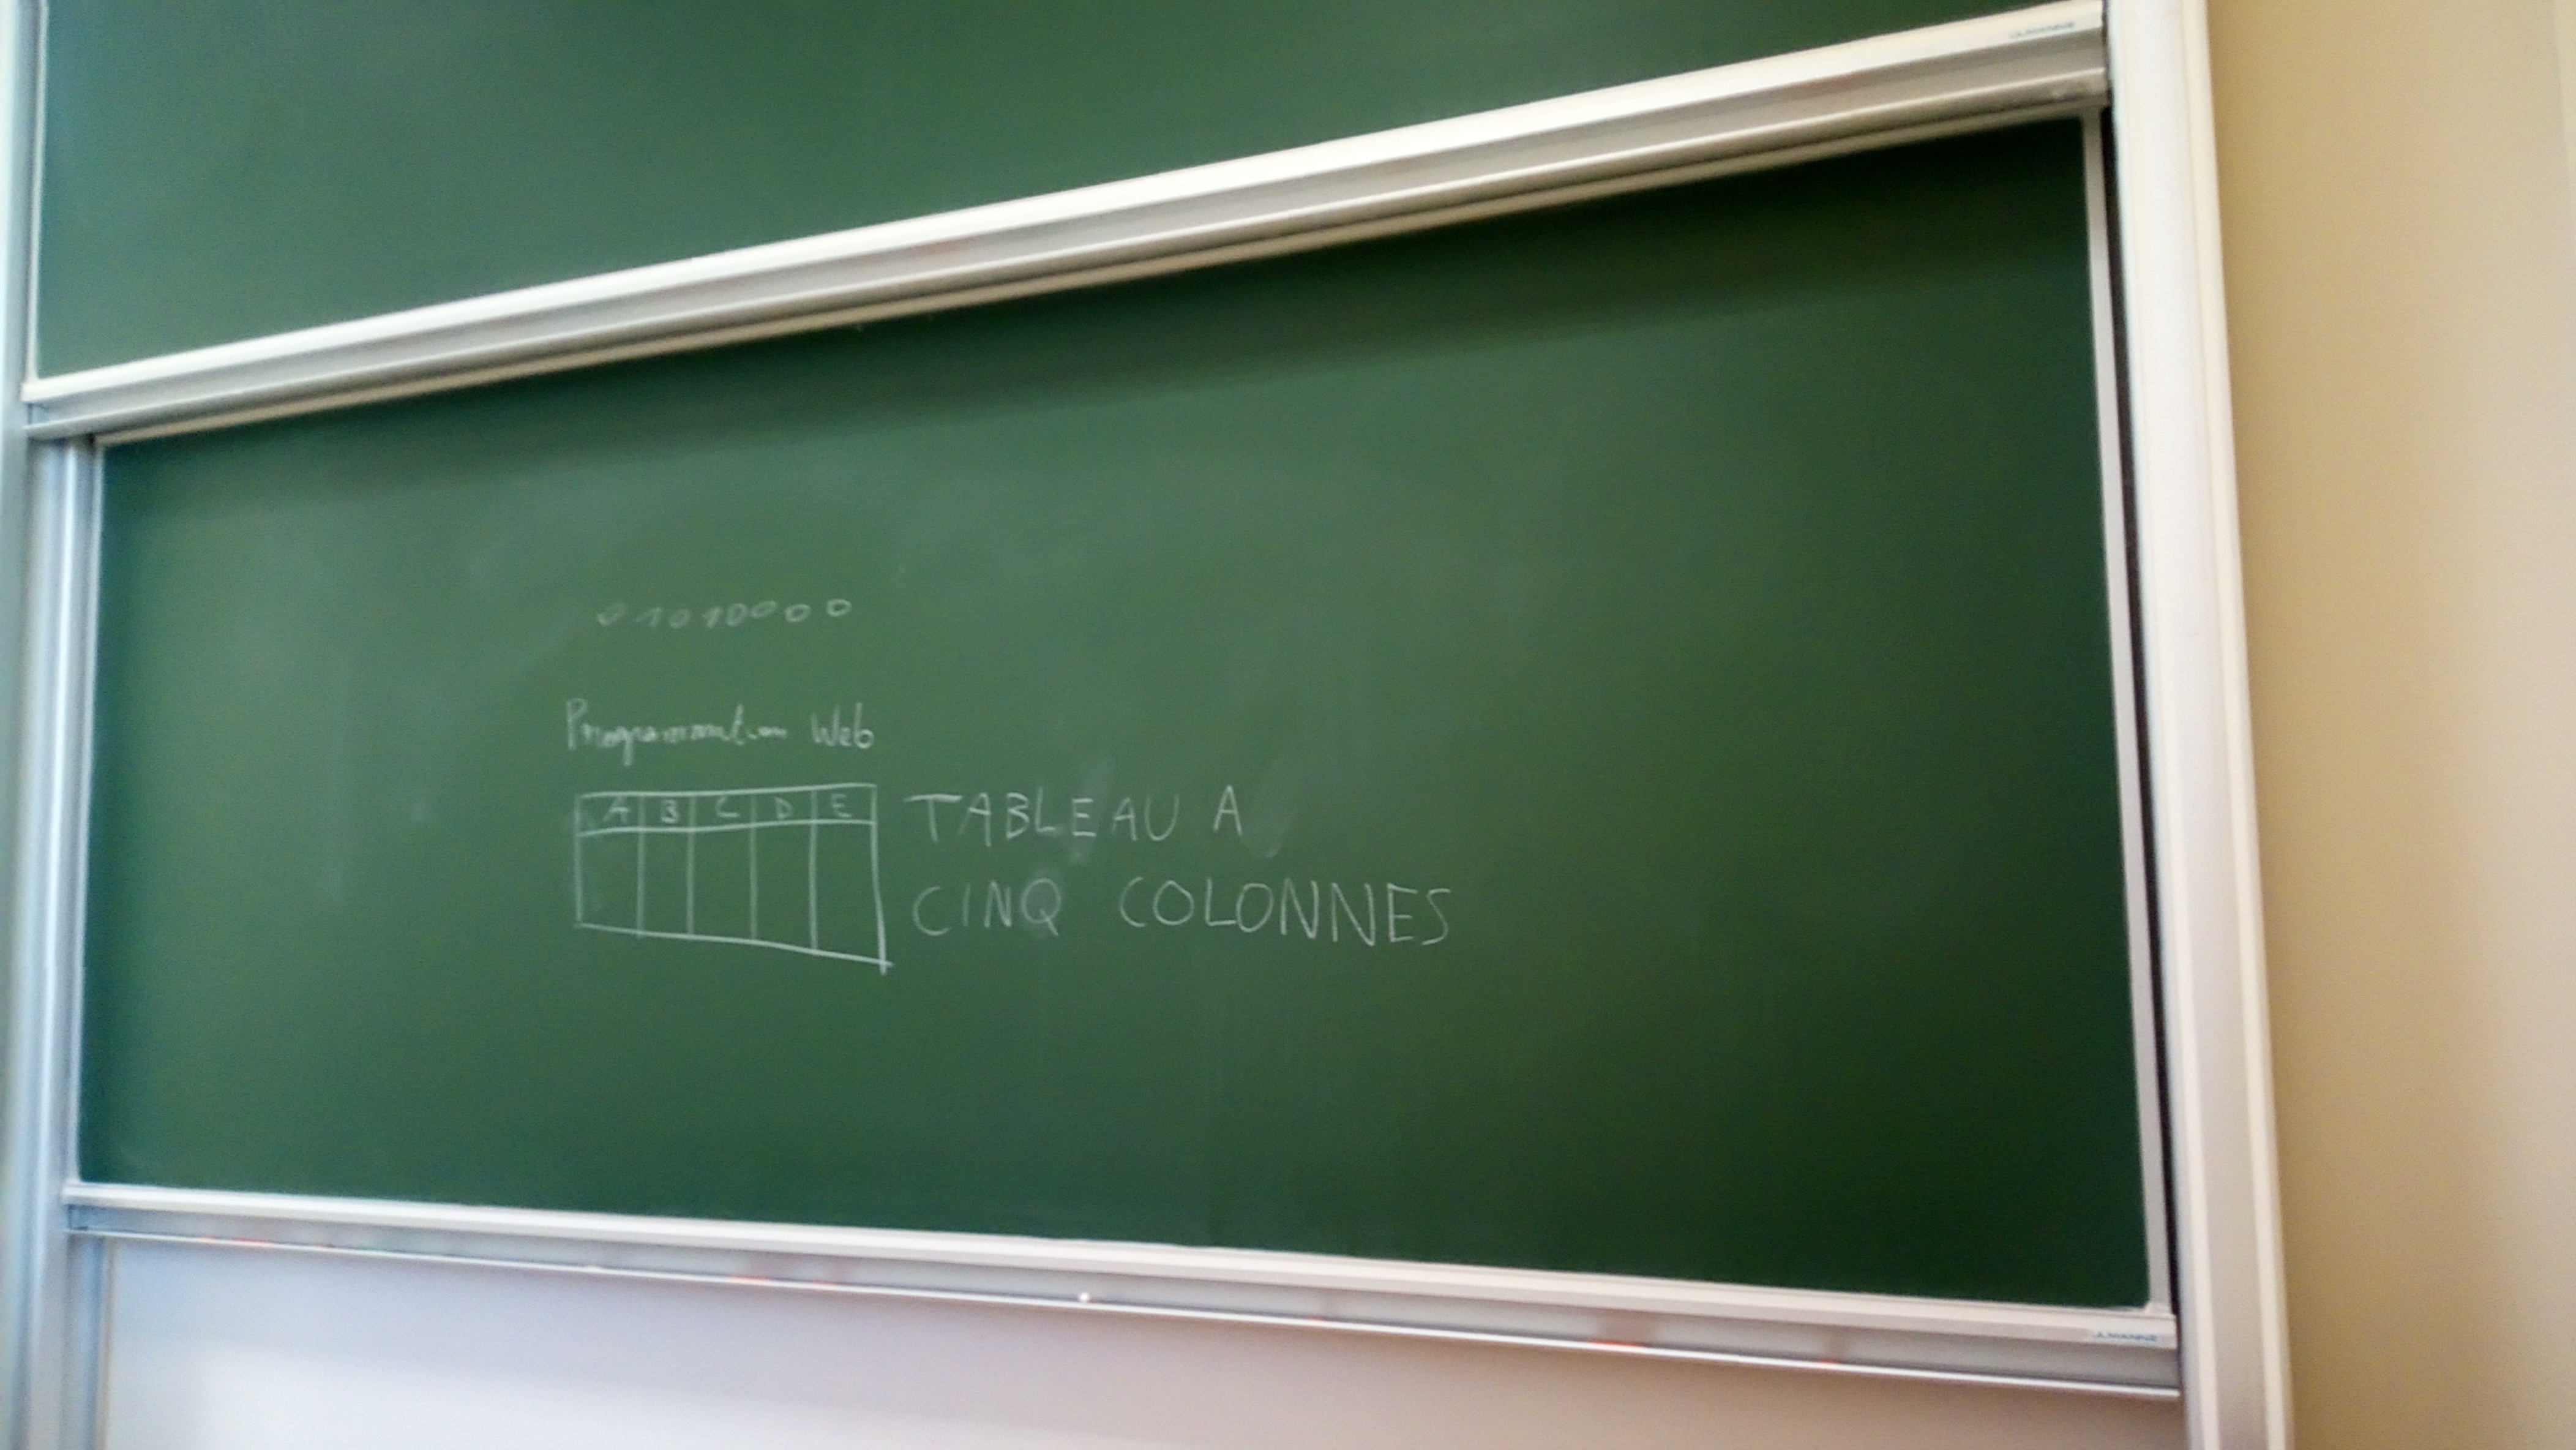 01010000
Programmation Web
A B C D E
TABLEAU A
CINQ COLONNES